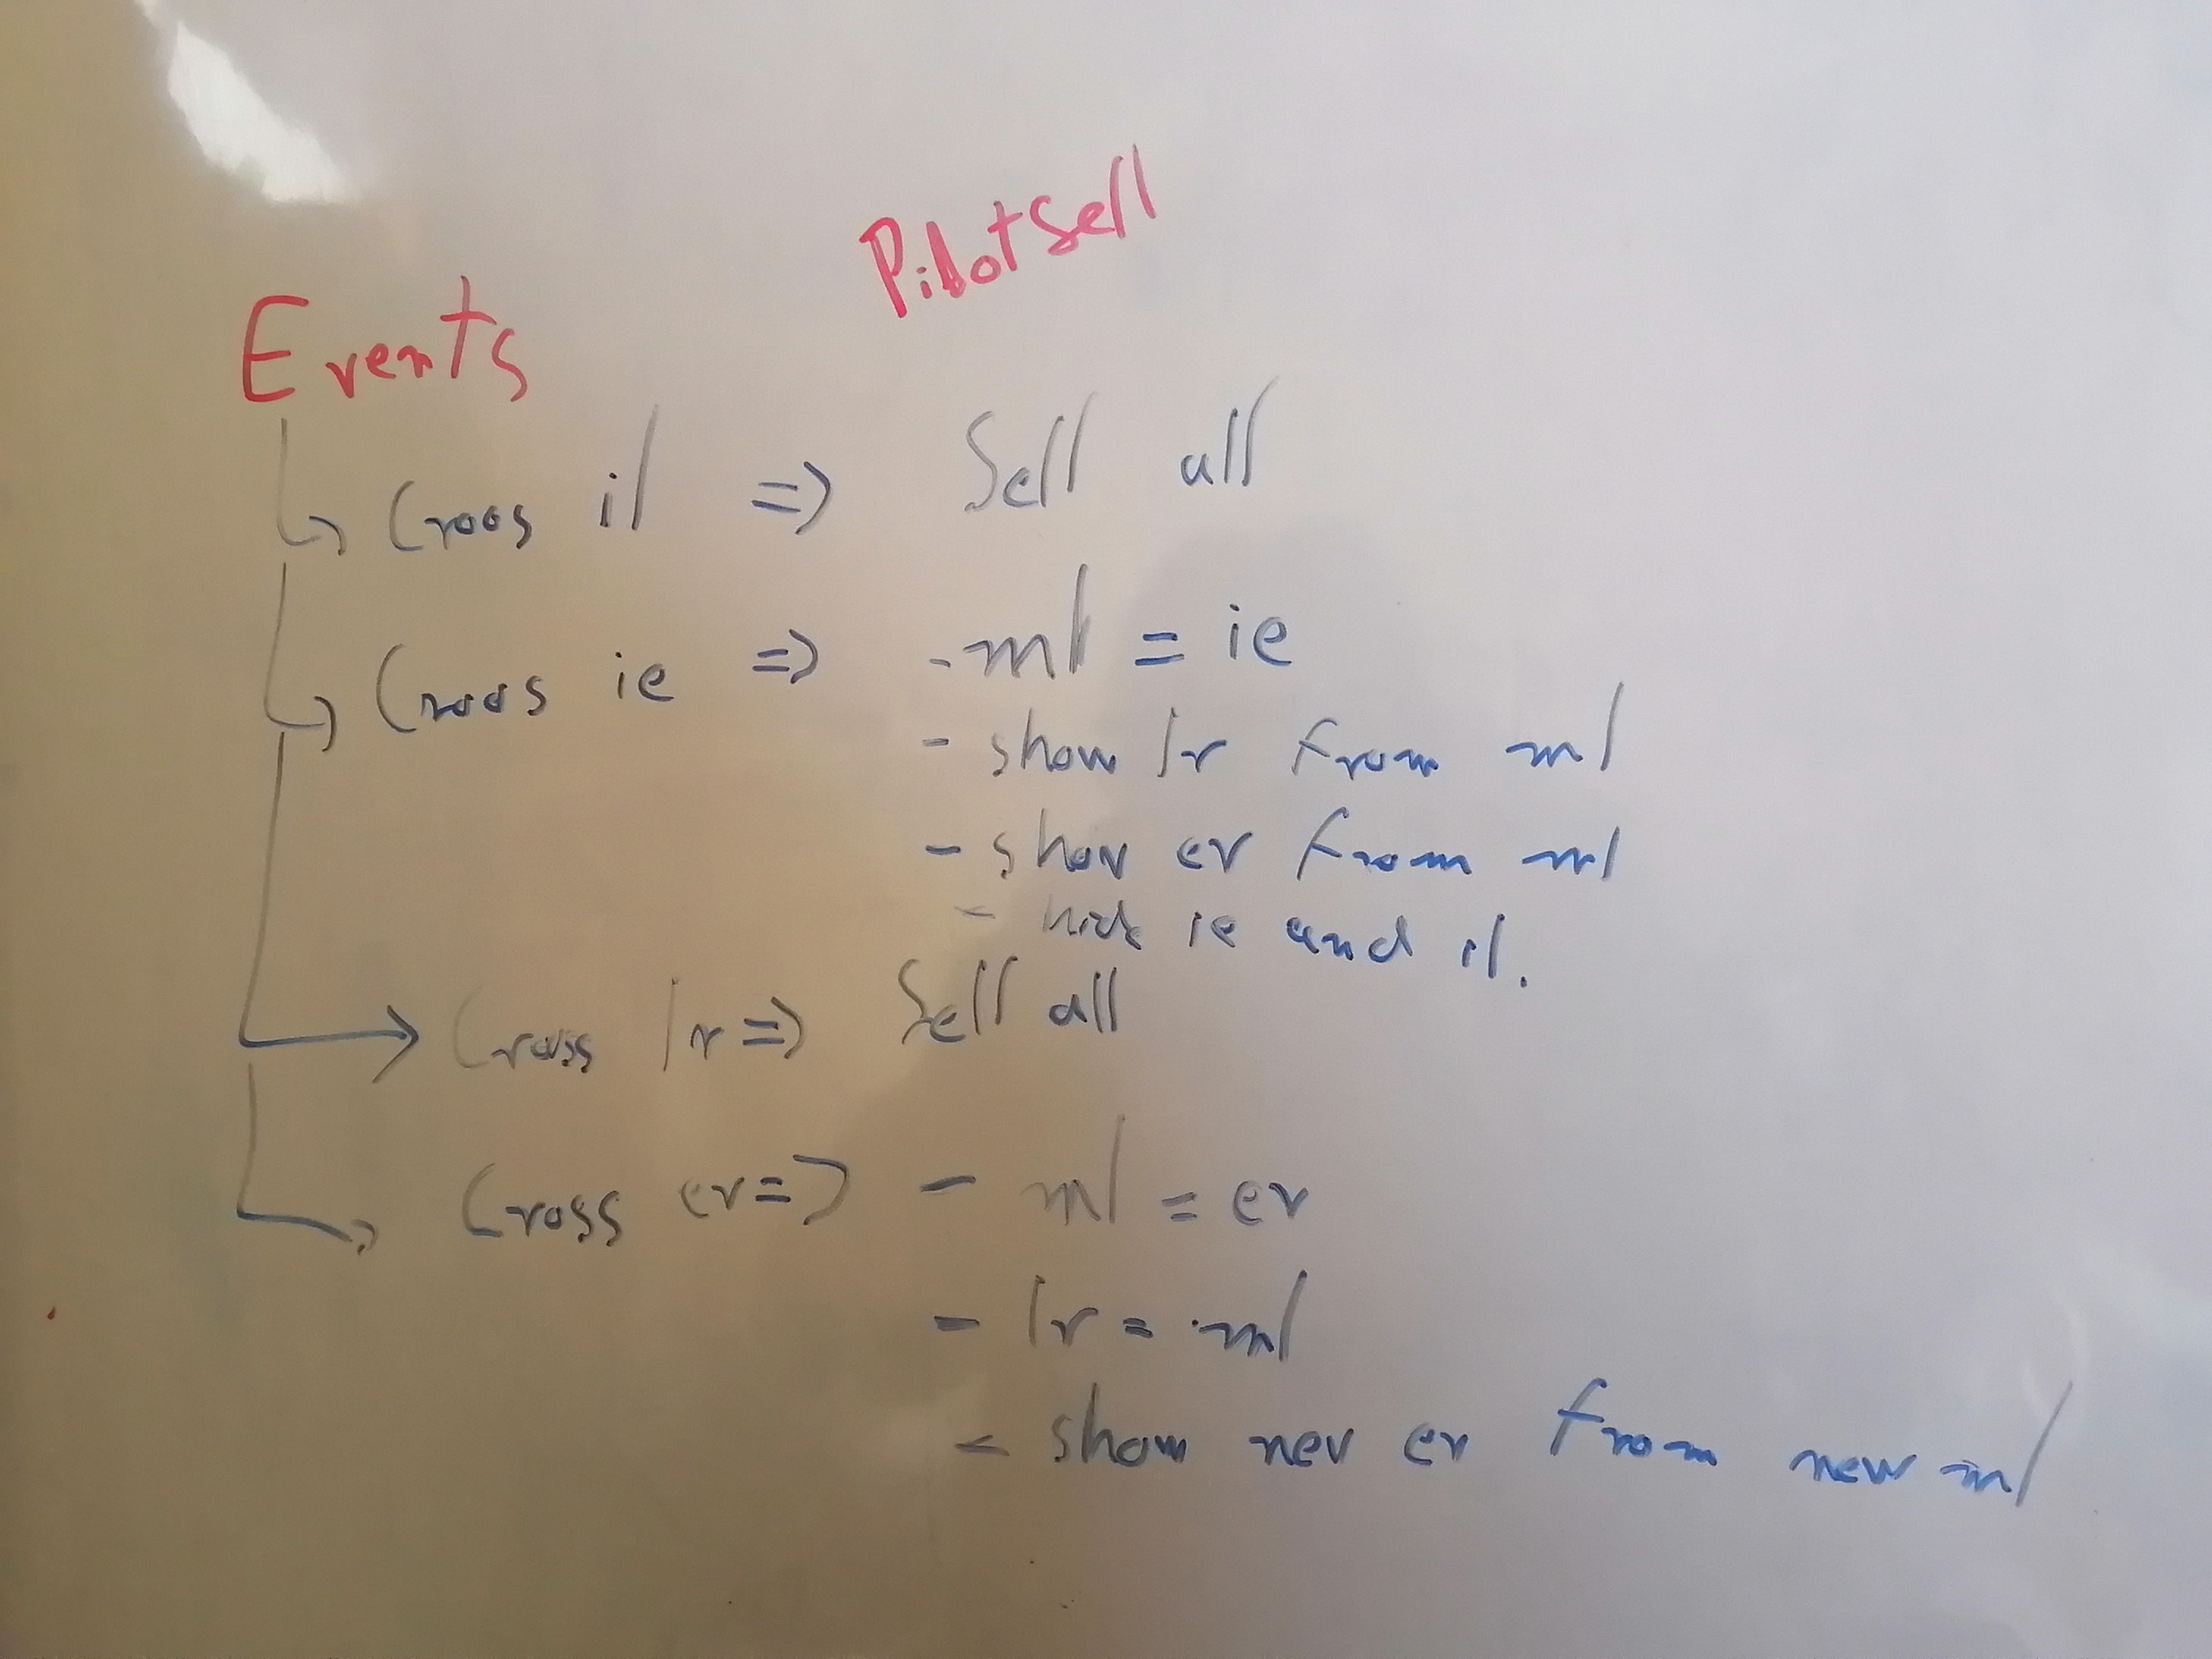 PilotSell
Events
Croos il => Sell all
Croos ie => - ml = ie
- show lr from ml
- show er from ml
- hide ie and il.
Cross lr => Sell all
Cross er => - ml = er
- lr = ml
- show new er from new ml